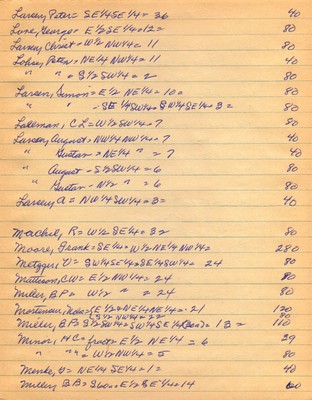 Larsen, Peter = SE¼SE¼ = 36 40
Lane, George = E½SE¼ = 12 = 80
Larsen, Christ = W½ NW¼ = 11 80
Lohse, Peter = NE¼ NW¼ = 11 40
" " = S½ SW¼ = 2 80
Larsen, Simon = E½ NE¼ = 10 = 80
" " - SE¼SW¼ = SW¼SE¼ = 3 = 80
Laleman, C L = W½ SW¼ = 7 80
Larsen, August = NW¼ NW¼ = 7 40
" Gustav = NE¼ " = 7 40
" August - S½ SW¼ = 6 80
" Gustav - N½ " = 6 80
Larsen, A = NW¼ SW¼ = 3 = 40
R = W½ SE¼ = 32 80
Moore, Frank = SE¼ = W½ NE¼ NW¼ = 280
Metzger, V = SW¼SE¼ = SE¼SW¼ = 24 80
Matteson, CW = E½ NW¼ = 24 80
Miller, B.P = W½ " = 24 80
Mortensen, = (E½ = NE¼NE¼ = 21 120
S½ NW¼ = 22 80
Miller, BP = S½SW¼ = SW¼SE¼ = 13 = 160
Minor, H C = E½ NE¼ = 6 39
" " " = W½ NW¼ = 5 80
Menke, = NE¼ SE¼ = 1 = 40
Miller, B B = 360 E½ SE¼ = 14 60